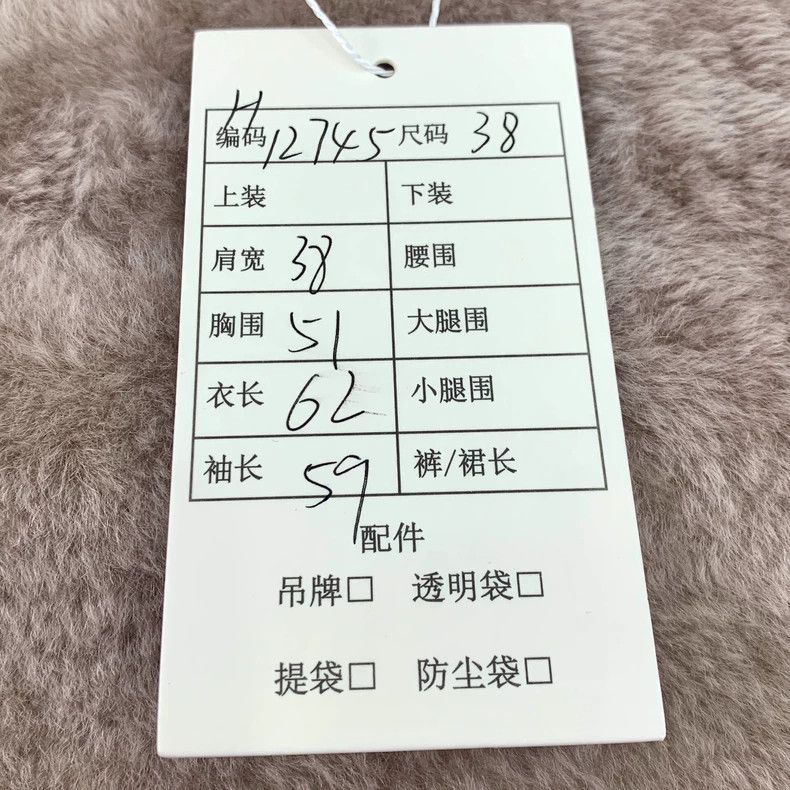 编码 H12745 尺码 38
上装 下装
肩宽 38 腰围
胸围 51 大腿围
衣长 62 小腿围
袖长 59 裤/裙长
配件
吊牌□ 透明袋□
提袋□ 防尘袋□